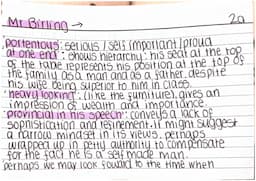 Mr Birling → 2a
portentous: serious / self important / proud
at one end: shows hierarchy: his seat at the top
of the table represents his position at the top of
the family as a man and as a father, despite
his wife being superior to him in class.
heavy looking: (like the furniture), gives an
impression of wealth and importance
provincial in his speech: conveys a lack of
sophistication and refinement. It might suggest
a narrow mindset in its views, perhaps
wrapped up in petty authority to compensate
for the fact he is a self made man.
perhaps we may look foward to the time when